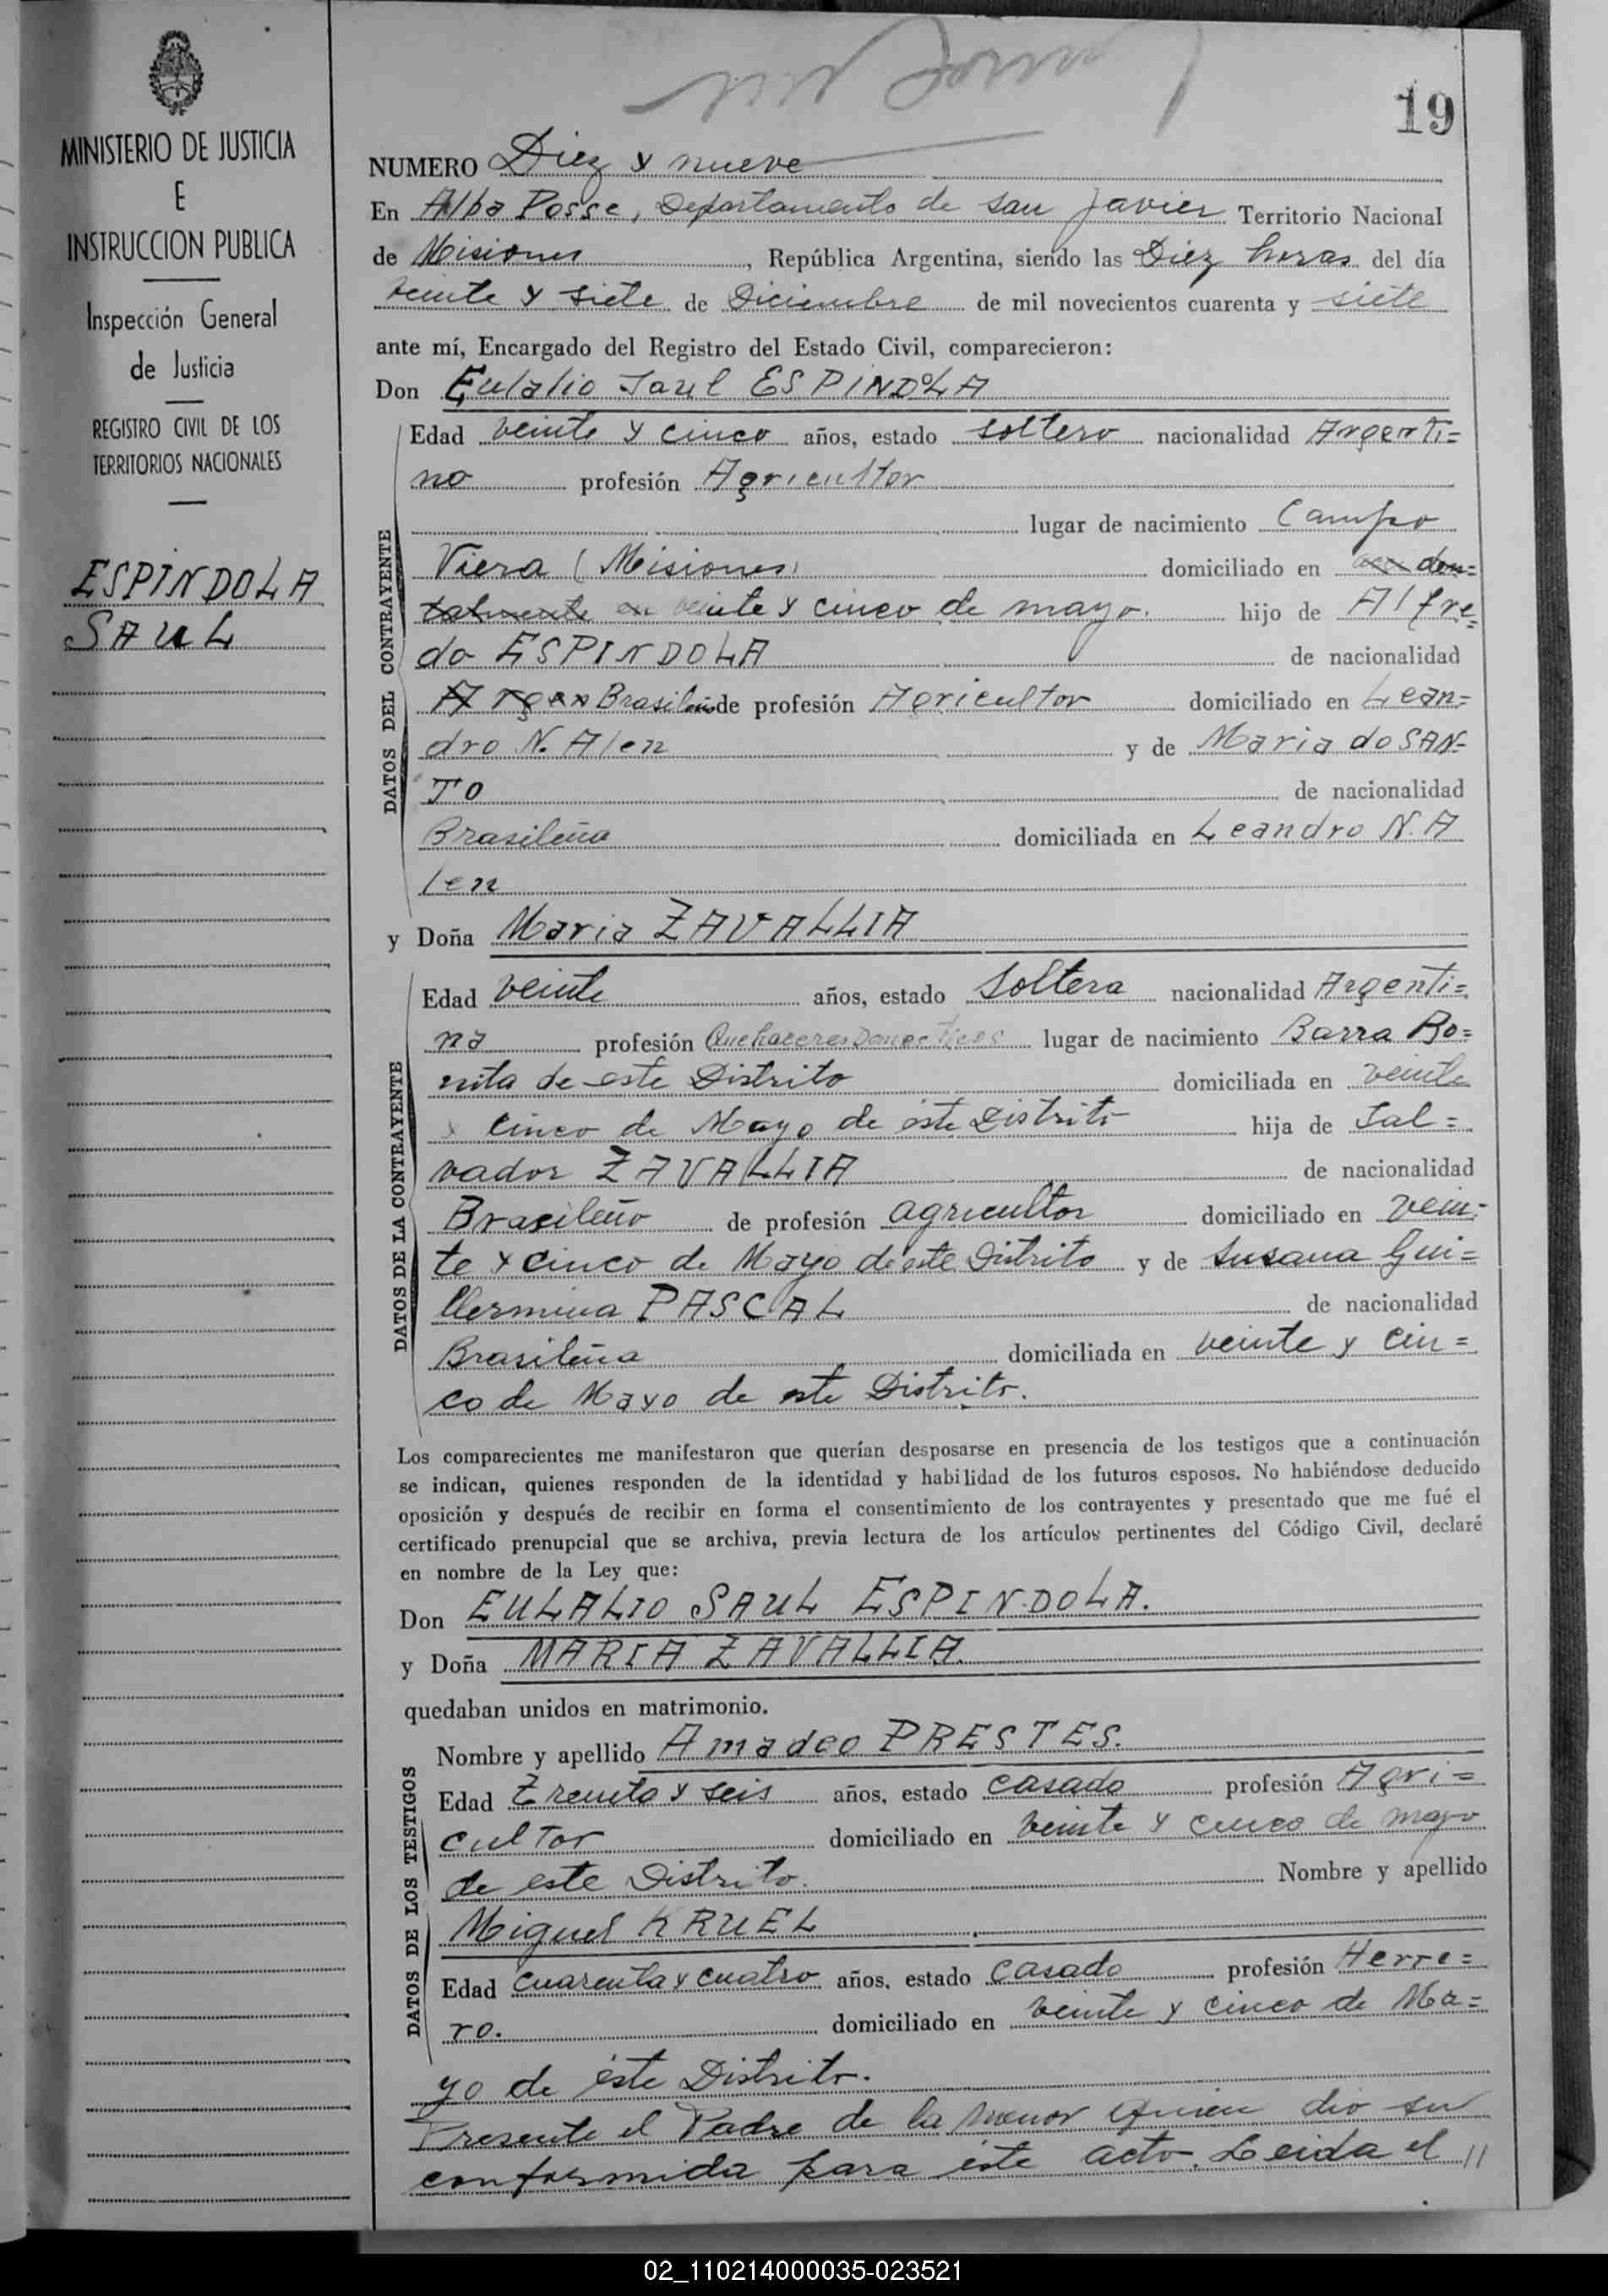 MINISTERIO DE JUSTICIA
E
INSTRUCCION PUBLICA
Inspección General
de Justicia
REGISTRO CIVIL DE LOS
TERRITORIOS NACIONALES
ESPINDOLA
SAUL
19
NUMERO Diez y nueve
En Alba Posse, Departamento de San Javier Territorio Nacional
de Misiones, República Argentina, siendo las Diez horas del día
veinte y siete de Diciembre de mil novecientos cuarenta y siete
ante mí, Encargado del Registro del Estado Civil, comparecieron:
Don Eulalio Saul ESPINDOLA
DATOS DEL CONTRAYENTE
Edad veinte y cinco años, estado soltero nacionalidad Argenti=
no profesión Agricultor
lugar de nacimiento Campo
Viera (Misiones) domiciliado en
veinte y cinco de mayo. hijo de Alfre=
do ESPINDOLA de nacionalidad
Argen Brasileño de profesión Agricultor domiciliado en Lean=
dro N. Alen y de Maria do SAN-
TO de nacionalidad
Brasileña domiciliada en Leandro N. A
len
y Doña Maria ZAVALLIA
DATOS DE LA CONTRAYENTE
Edad veinte años, estado Soltera nacionalidad Argenti=
na profesión Quehaceres Domesticos lugar de nacimiento Barra Bo=
nita de este Distrito domiciliada en veinte
y cinco de Mayo de este Distrito hija de Sal=
vador ZAVALLIA de nacionalidad
Brasileño de profesión agricultor domiciliado en vein=
te y cinco de Mayo de este Distrito y de Susana Gui=
llermina PASCAL de nacionalidad
Brasileña domiciliada en veinte y cin=
co de Mayo de este Distrito.
Los comparecientes me manifestaron que querían desposarse en presencia de los testigos que a continuación
se indican, quienes responden de la identidad y habilidad de los futuros esposos. No habiéndose deducido
oposición y después de recibir en forma el consentimiento de los contrayentes y presentado que me fué el
certificado prenupcial que se archiva, previa lectura de los artículos pertinentes del Código Civil, declaré
en nombre de la Ley que:
Don EULALIO SAUL ESPINDOLA.
y Doña MARIA ZAVALLIA.
quedaban unidos en matrimonio.
DATOS DE LOS TESTIGOS
Nombre y apellido Amadeo PRESTES.
Edad Treinta y seis años, estado casado profesión Agri=
cultor domiciliado en veinte y cinco de mayo
de este Distrito. Nombre y apellido
Miguel KRUEL
Edad cuarenta y cuatro años, estado casado profesión Herre=
ro. domiciliado en veinte y cinco de Ma=
yo de éste Distrito.
Presente el Padre de la menor quien dio su
conformida para éste acto. Leida el //
02_110214000035-023521